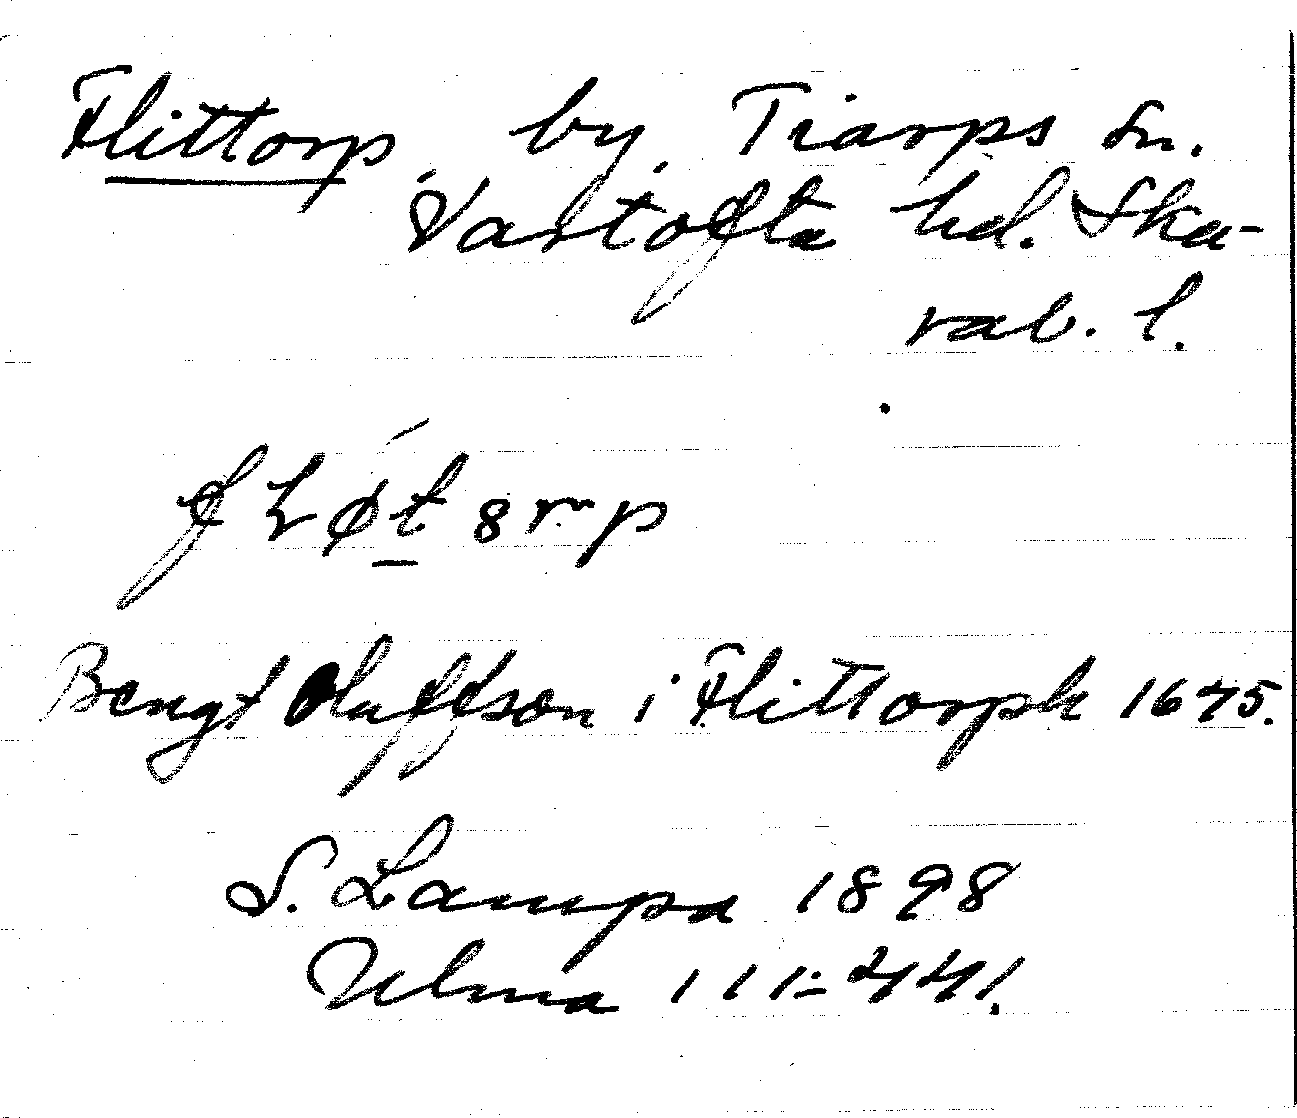 Flittorp by, Tiarps sn.
Vartofta hd. Ska-
rab. l.
Bengt Oluffson i Flittorph 1645.
S. Lampa 1898
Ulma 111:441.